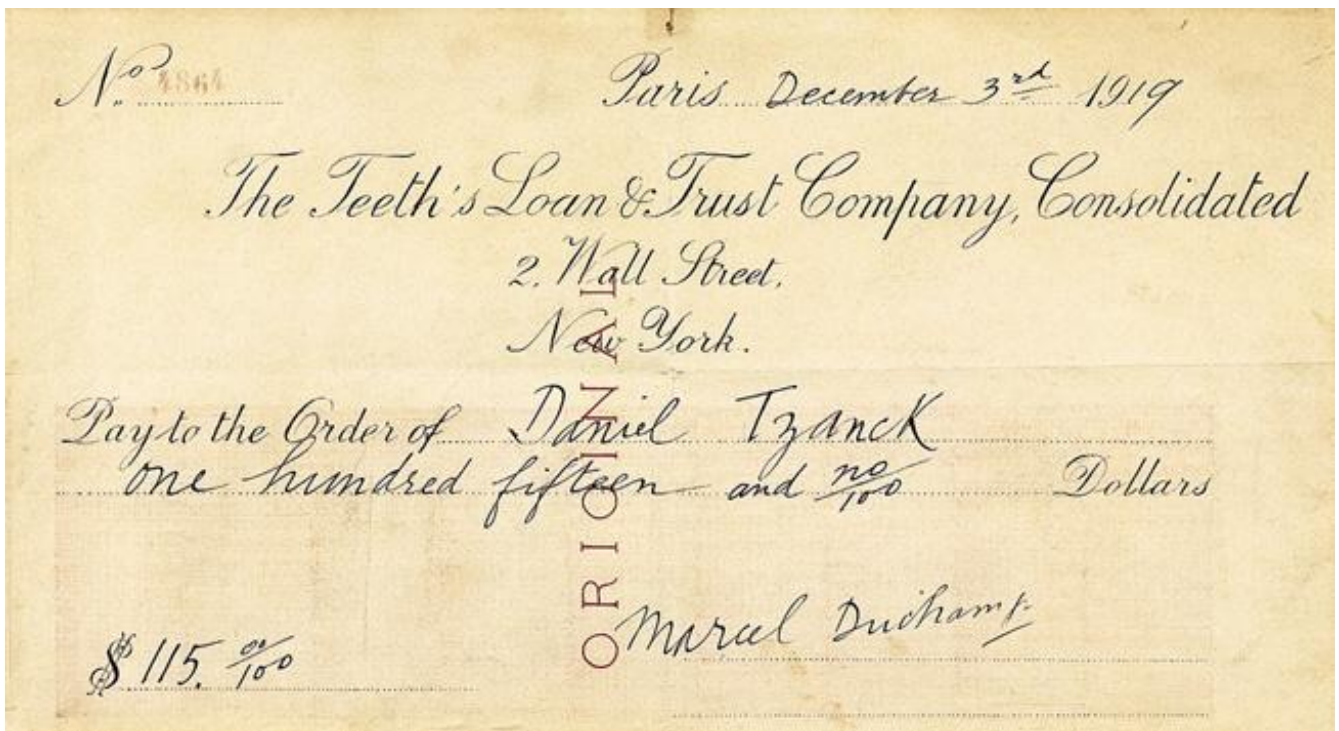 No. 4864
Paris December 3rd 1919
The Teeth's Loan & Trust Company, Consolidated
2. Wall Street.
New York.
Pay to the Order of Daniel Tzanck
one hundred fifteen and no/100 Dollars
ORIGINAL
Marcel Duchamp
$ 115. 00/100